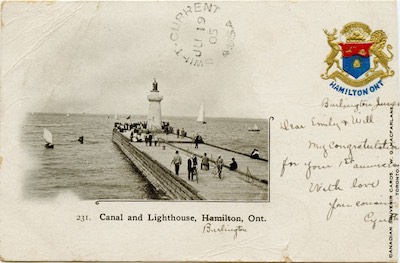 SWIFT-CURRENT
JU 19
05
ASSA
HAMILTON ONT.
Burlington, June
Dear Emily & Will
My congratulation
for your 1st anniver
With love
Your cousin
231. Canal and Lighthouse, Hamilton, Ont.
Burlington
CANADIAN SOUVENIR CARDS. W. G. MACFARLANE
TORONTO